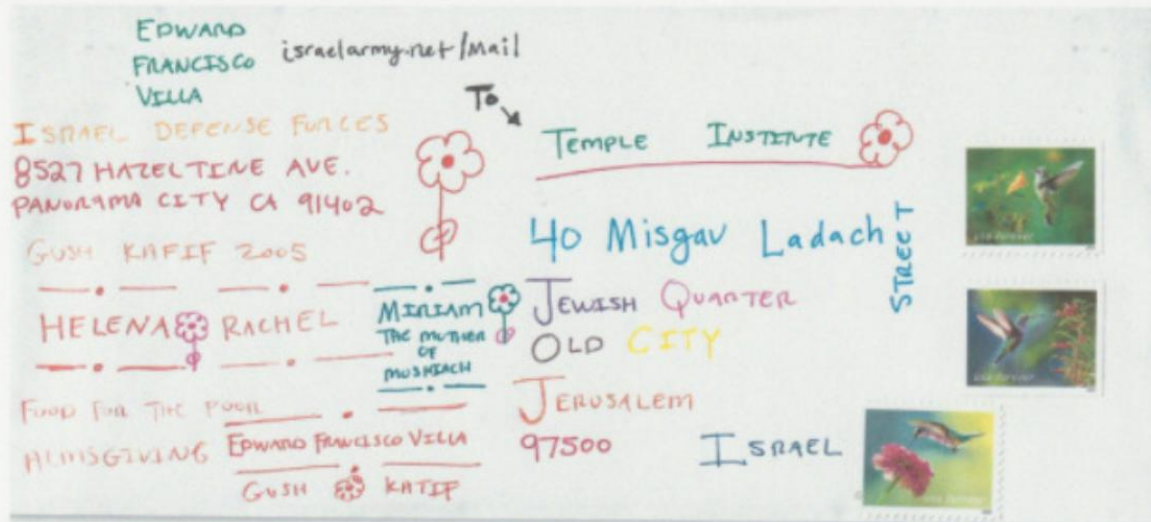 EDWARD
FRANCISCO
VILLA
israelarmy.net/Mail
ISRAEL DEFENSE FORCES
8527 HAZELTINE AVE.
PANORAMA CITY CA 91402
GUSH KATIF 2005
HELENA RACHEL
MIRIAM
THE MOTHER
OF
MOSHIACH
FOOD FOR THE POOR
ALMSGIVING
EDWARD FRANCISCO VILLA
GUSH KATIF
To
TEMPLE INSTITUTE
40 Misgav Ladach
STREET
JEWISH QUARTER
OLD CITY
JERUSALEM
97500 ISRAEL